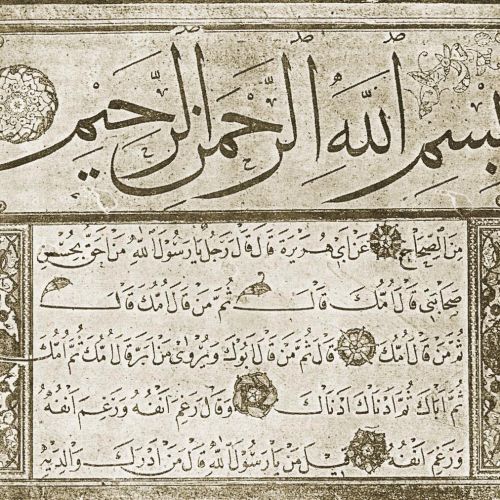 بسم الله الرحمن الرحيم
من الصحاح عن أبي هريرة قال قال رجل يا رسول الله من أحق بحسن
صحابتي قال أمك قال ثم من قال أمك قال
ثم من قال أمك قال ثم من قال أبوك ويروى من أبر قال أمك ثم أمك
ثم أباك ثم أدناك أدناك وقال رغم أنفه ورغم أنفه
ورغم أنفه قيل من يا رسول الله قال من أدرك والديه